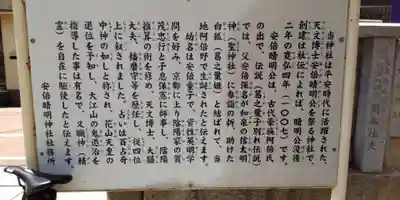 当神社は平安時代に活躍された、
天文博士安倍晴明公を祭る神社で、
創建は社伝によれば、晴明公没後
二年の寛弘四年(一〇〇七)です。
安倍晴明公は、古代豪族阿倍氏
の出で、伝説(葛之葉子別れ伝説)
では、父安倍保名が和泉の信太明
神(聖神社)へ参詣の折、助けた
白狐(葛之葉姫)と結ばれて、当
地阿倍野で生誕されたと伝えます。
幼名は安倍童子で、資性英明学
問を好み、京都に上り陰陽家の賀
茂忠行と子息保憲に師事し、陰陽
推算の術を修め、天文博士、大膳
大夫、播磨守等を歴任し、従四位
上に叙されました。占いは百占奇
中神の如しと称され、花山天皇の
退位を予知し、大江山の鬼退治を
指導した事は有名で、又職神(精
霊)を自在に駆使したと伝えます。
安倍晴明神社社務所